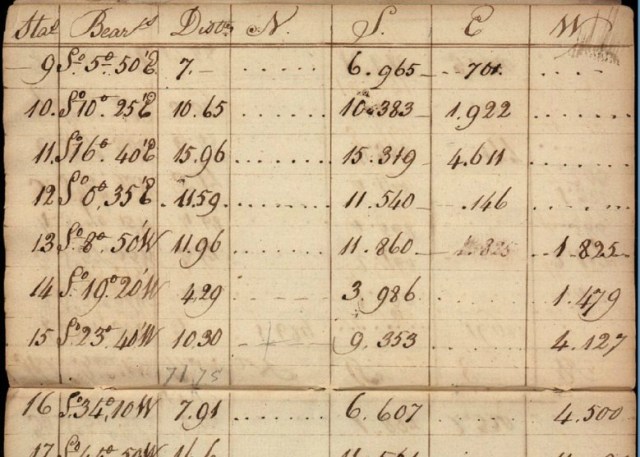 Stat Bear.gs Dist.s N. S. E W
9 So. 5o. 50'E 7.— ...... 6.965 .701 ......
10. So10o. 25'E 10.65 ...... 10.383 1.922 ......
11. So16o. 40'E 15.96 ...... 15.319 4.611 ......
12 So. 0o. 35'E 11.59 ...... 11.540 .146 ......
13 So. 8o. 50'W 11.96 ...... 11.860 1.825 1.825
14 So. 19o. 20'W 4.29 ...... 3.986 ...... 1.479
15 So. 23o. 40'W 10.30 ...... 9.353 ...... 4.127
7175
16 So. 34o. 10W 7.91 ...... 6.607 ...... 4.500
17